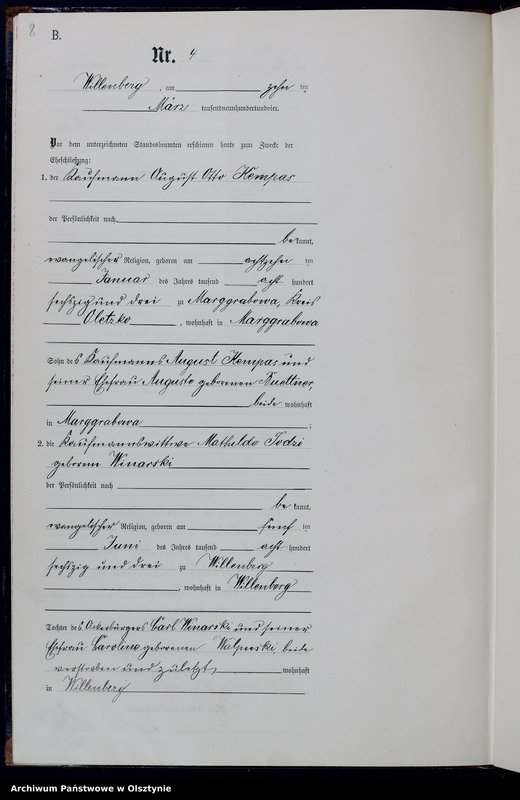 8
B.
Nr. 4
Willenberg, am zehn ten
März tausendneunhundertundvier.
Vor dem unterzeichneten Standesbeamten erschienen heute zum Zwecke der
Eheschließung:
1. der Kaufmann August Otto Kempas
der Persönlichkeit nach
bekannt,
evangelischer Religion, geboren am achtzehn ten
Januar des Jahres tausend acht hundert
sechszig und drei zu Marggrabowa, Kreis
Oletzko, wohnhaft in Marggrabowa
Sohn des Kaufmanns August Kempas und
seiner Ehefrau Auguste geborenen Buettner,
beide wohnhaft
in Marggrabowa;
2. die Kaufmannswittwe Mathilde
geborene Winarski
der Persönlichkeit nach
bekannt,
evangelischer Religion, geboren am fünf ten
Juni des Jahres tausend acht hundert
sechszig und drei zu Willenberg
, wohnhaft in Willenberg
Tochter des Ackerbürgers Carl Winarski und seiner
Ehefrau Caroline geborenen beide
verstorben und zuletzt wohnhaft
in Willenberg
Archiwum Państwowe w Olsztynie